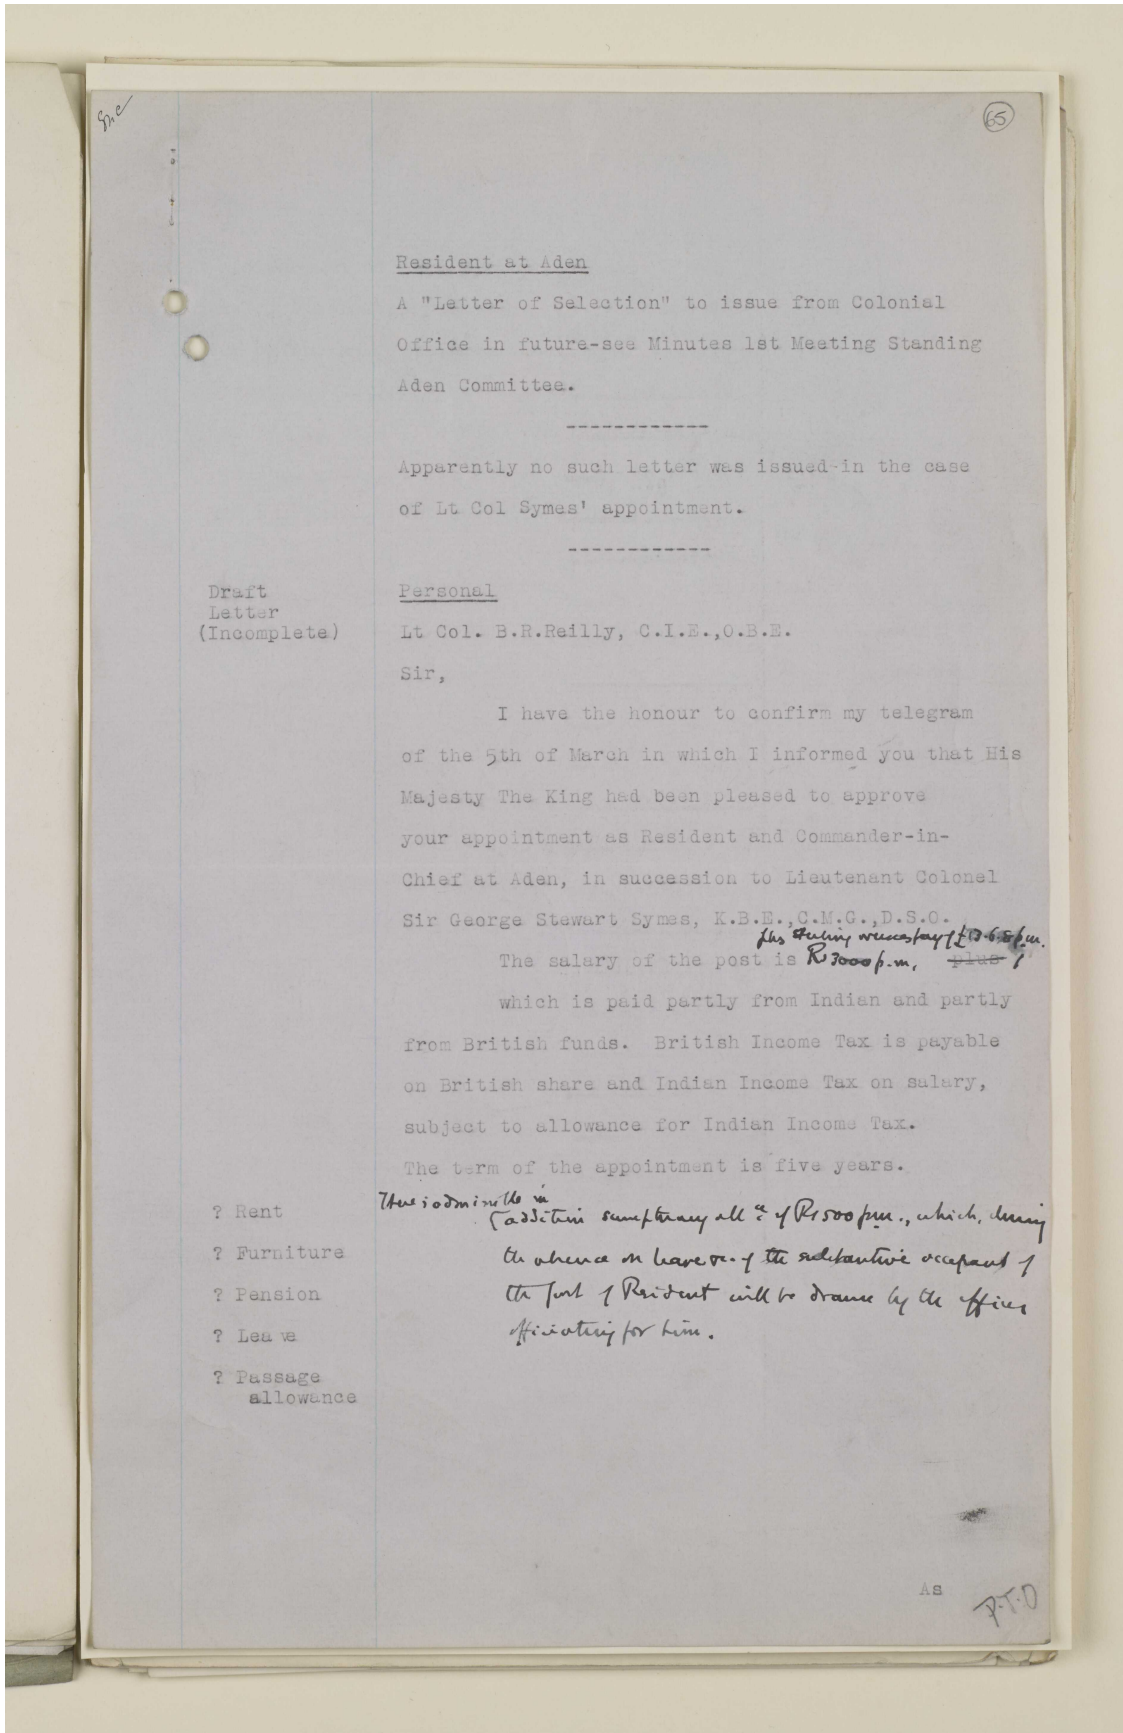 Enc
65
Resident at Aden
A "Letter of Selection" to issue from Colonial
Office in future-see Minutes 1st Meeting Standing
Aden Committee.
------------
Apparently no such letter was issued in the case
of Lt Col Symes' appointment.
------------
Draft
Letter
(Incomplete)
Personal
Lt Col. B.R.Reilly, C.I.E.,O.B.E.
Sir,
I have the honour to confirm my telegram
of the 5th of March in which I informed you that His
Majesty The King had been pleased to approve
your appointment as Resident and Commander-in-
Chief at Aden, in succession to Lieutenant Colonel
Sir George Stewart Symes, K.B.E.,C.M.G.,D.S.O.
plus sterling overseas pay of £13.6.8 p.m.
The salary of the post is Rs 3000 p.m, plus
which is paid partly from Indian and partly
from British funds. British Income Tax is payable
on British share and Indian Income Tax on salary,
subject to allowance for Indian Income Tax.
The term of the appointment is five years.
? Rent
? Furniture
? Pension
? Leave
? Passage
allowance
There is admissible in
addition sumptuary allce of Rs 500 p.m., which, during
the absence on leave &c. of the substantive occupant of
the post of Resident will be drawn by the officer
officiating for him.
As
P.T.O